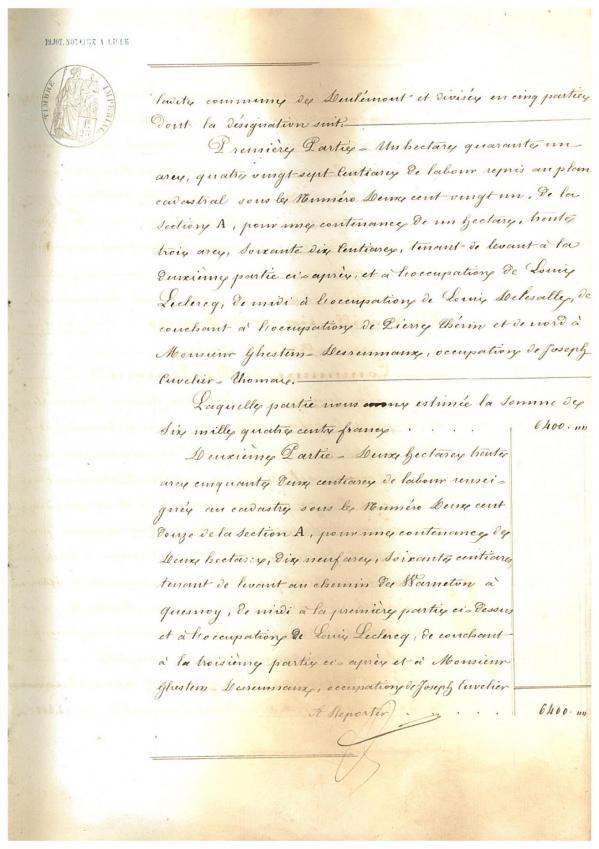 PAJOT, NOTAIRE A LILLE
TIMBRE IMPERIAL
ladite commune de Deulémont et divisée en cinq parties
dont la désignation suit.
Première Partie - Un hectare quarante un
ares, quatre vingt sept centiares de labour repris au plan
cadastral sous le Numéro Deux cent vingt un, de la
section A, pour une contenance de un hectare, trente
trois ares, soixante dix centiares, tenant de levant à la
deuxième partie ci-après, et à l'occupation de Louis
Leclercq, de midi à l'occupation de Louis Delesalle, de
couchant à l'occupation de Pierre Thérin et de nord à
Monsieur Ghestem-Desreumaux, occupation de Joseph
Cuvelier-Thomas.
Laquelle partie nous avons estimée la somme de
Six mille quatre cents francs . . . . 6400. "„
Deuxième Partie - Deux hectares trente
ares cinquante deux centiares de labour rensei-
gnés au cadastre sous le Numéro Deux cent
douze de la section A, pour une contenance de
Deux hectares, dix neuf ares, soixante centiares
tenant de levant au chemin de Warneton à
quesnoy, de midi à la première partie ci-dessus
et à l'occupation de Louis Leclercq, de couchant
à la troisième partie ci-après et à Monsieur
Ghestem-Desreumaux, occupation de Joseph Cuvelier
A Reporter . . . . 6400. "„